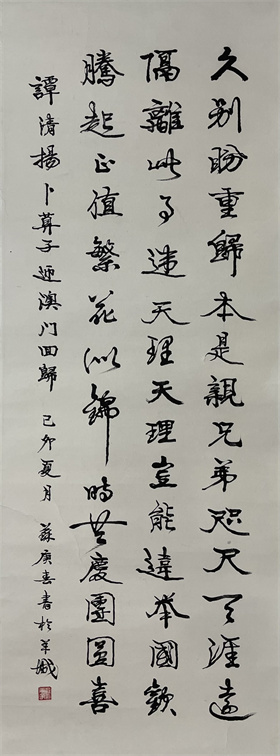 久別盼重歸本是親兄弟咫尺天涯遠
隔離此事違天理天理豈能違舉國歡
騰起正值繁花似錦時共慶團圓喜
譚清揚卜算子迎澳门回歸 己卯夏月 蘇庚春書於羊城